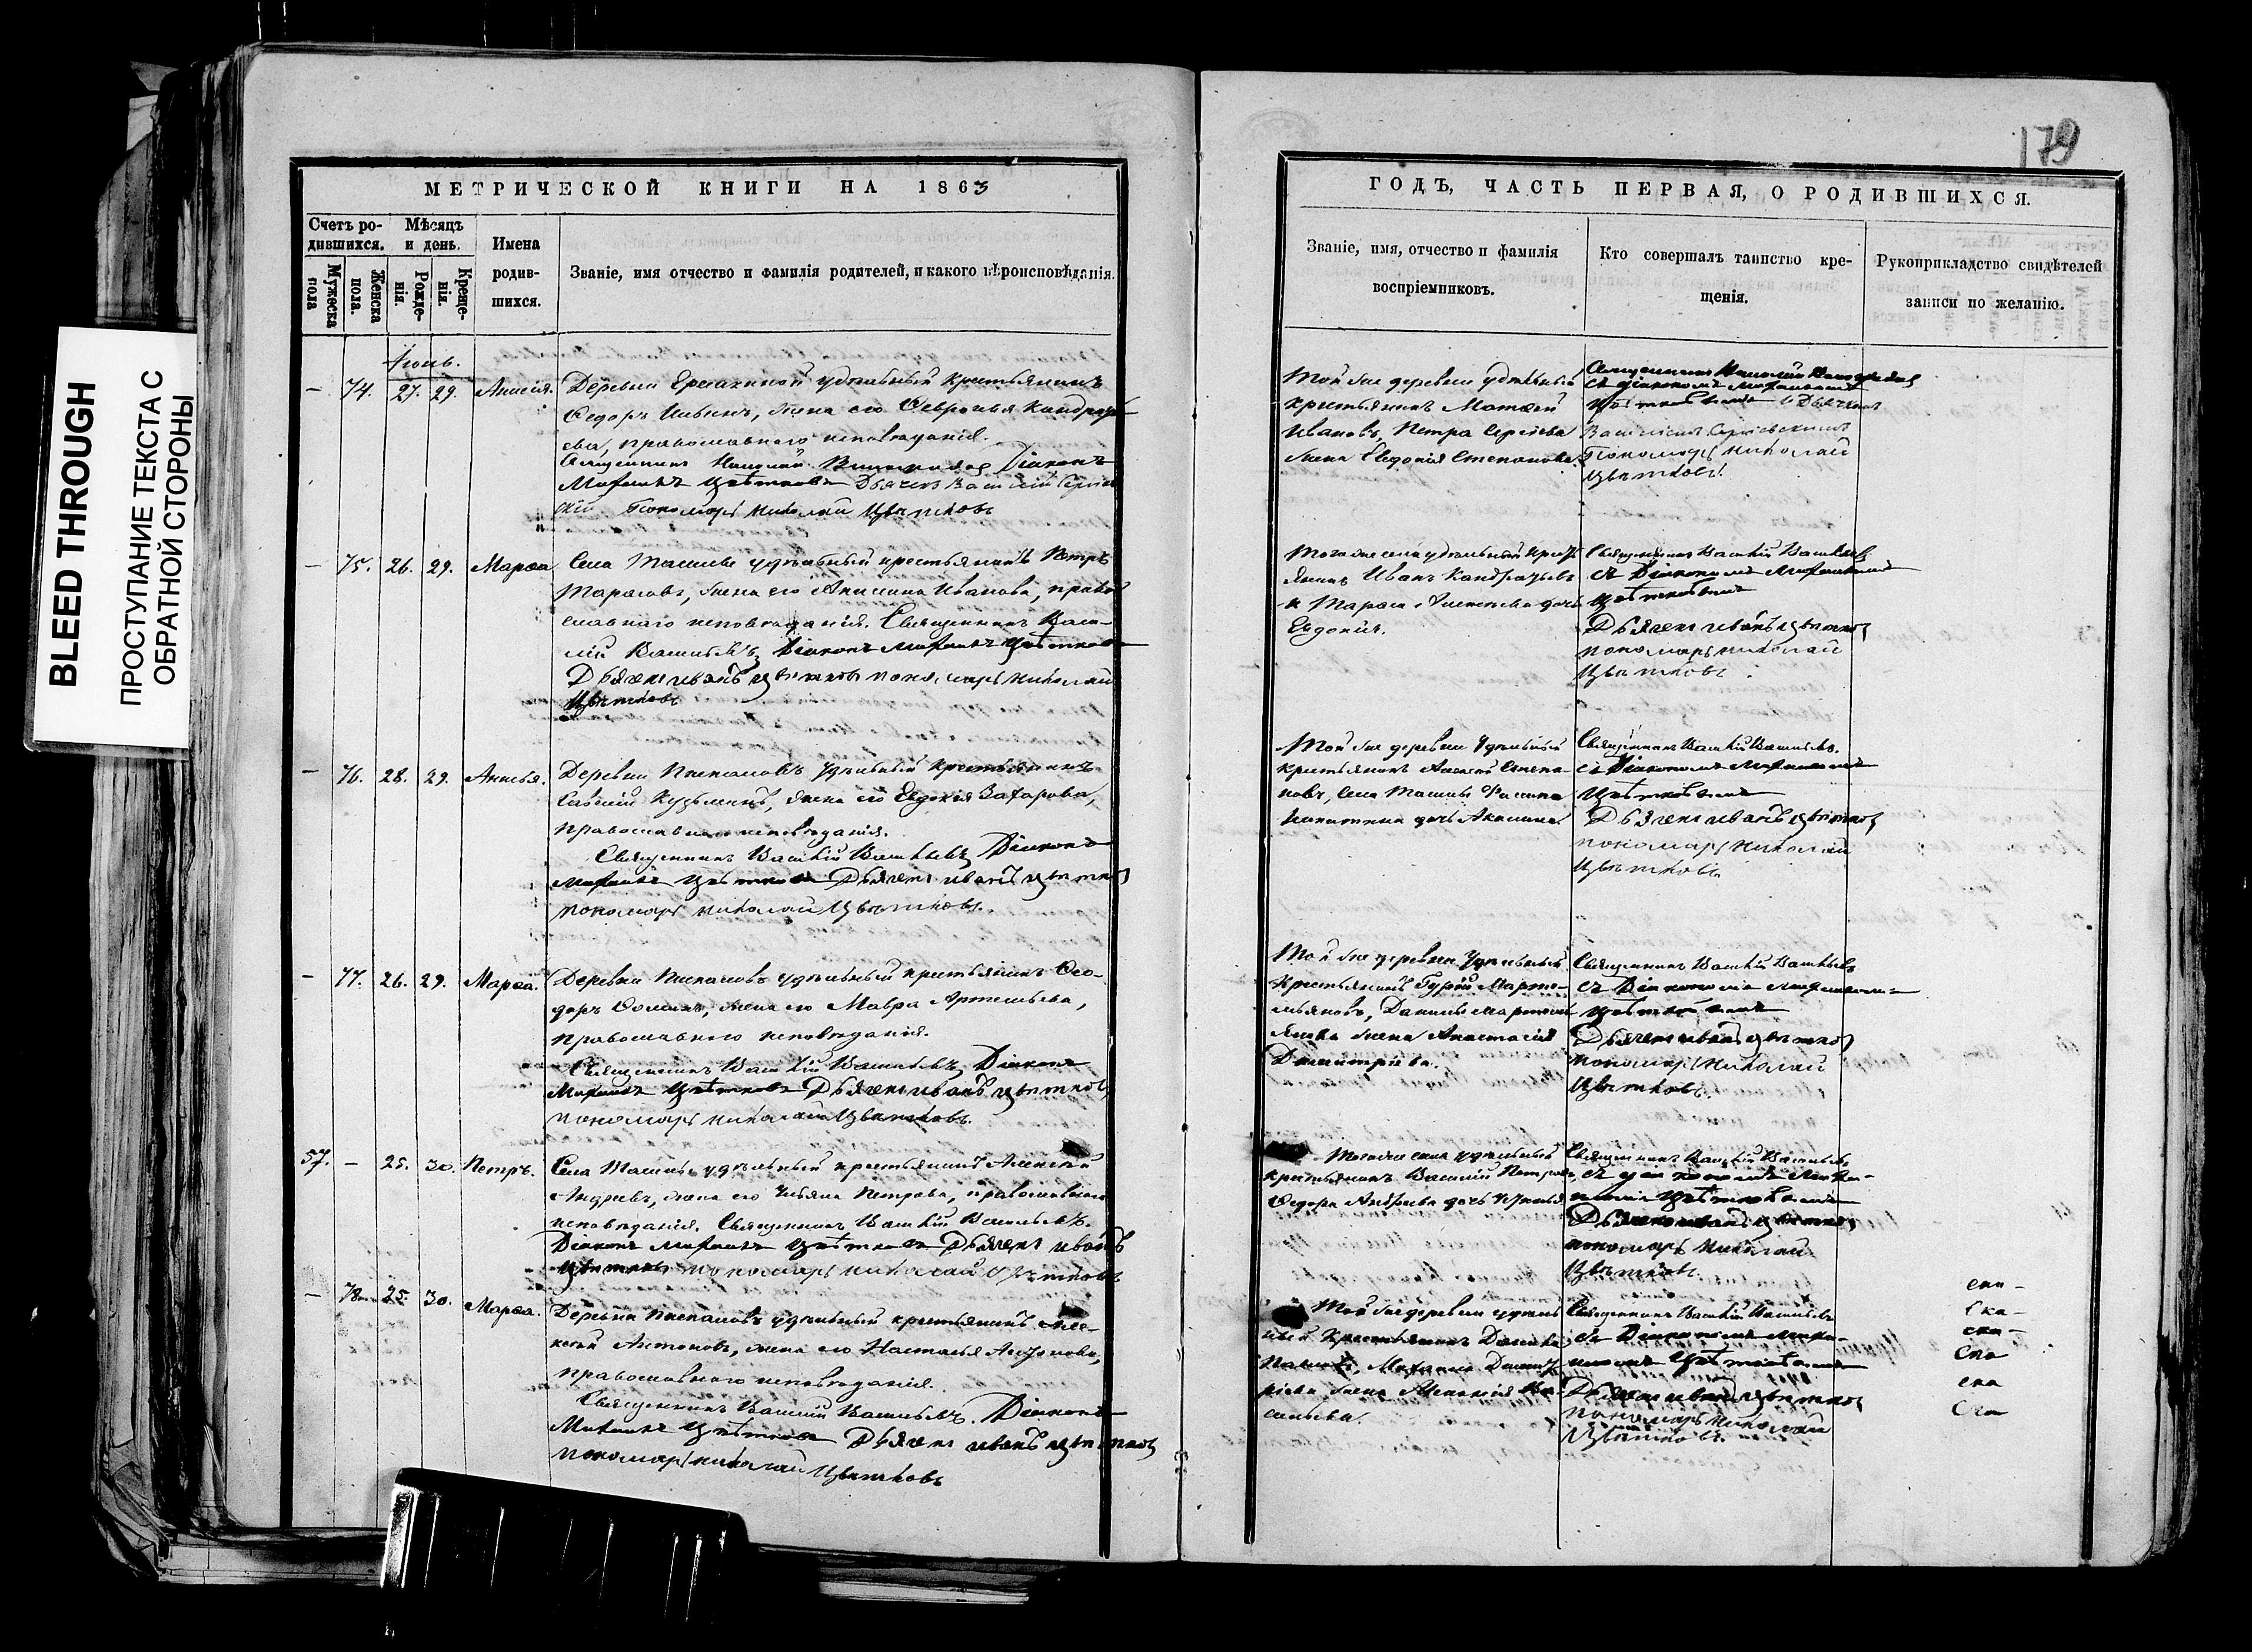 BLEED THROUGH
ПРОСТУПАНИЕ ТЕКСТА С
ОБРАТНОЙ СТОРОНЫ
МЕТРИЧЕСКОЙ КНИГИ НА 1863
Счетъ ро-
дившихся.
Мѣсяцъ
и день.
Мужеска
пола
Женска
пола.
Рожде-
нія.
Креще-
нія.
Имена
родив-
шихся.
Званіе, имя отчество и фамилія родителей, и какого вѣроисповѣданія.
Іюнь.
— 74. 27. 29. Анисія. Деревни Ермакиной удѣльный крестьянинъ
Ѳедоръ Ильинъ, жена его Ѳевронья Кандрать
ева, православнаго исповѣданія.
Священникъ Николай Діаконъ
Михаилъ Цвѣтковъ Дьячекъ Василій
Пономарь Николай Цвѣтковъ
— 75. 26. 29. Марѳа Села удѣльный крестьянинъ Петръ
Тарасовъ, жена его Акилина Иванова, право
славнаго исповѣданія. Священникъ Васи-
лій Васильевъ, Діаконъ Михаилъ Цвѣтковъ
Дьячекъ иванъ цвѣтковъ пономарь Николай
Цвѣтковъ
— 76. 28. 29. Анисья. Деревни удѣльный крестьянинъ
Савелій Кузьминъ, жена его Евдокія Захарова,
православнаго исповѣданія.
Священникъ Василій Васильевъ Діаконъ
Михаилъ Цвѣтковъ Дьячекъ иванъ цвѣтковъ
пономарь Николай Цвѣтковъ.
— 77. 26. 29. Марѳа. Деревни удѣльный крестьянинъ Ѳео-
доръ Ѳоминъ, жена его Мавра Артемьева,
православнаго исповѣданія.
Священникъ Василій Васильевъ Діаконъ
Михаилъ Цвѣтковъ Дьячекъ иванъ цвѣтковъ
пономарь Николай Цвѣтковъ.
57. — 25. 30. Петръ. Села удѣльный крестьянинъ Алексѣй
Андреевъ, жена его Ульяна Петрова, православнаго
исповѣданія. Священникъ Василій Васильевъ.
Діаконъ Михаилъ Цвѣтковъ Дьячекъ иванъ
Цвѣтковъ пономарь Николай Цвѣтковъ
— 78. 25. 30. Марѳа. Деревни удѣльный крестьянинъ Але-
ксѣй Антоновъ, жена его Настасья
православнаго исповѣданія.
Священникъ Василій Васильевъ. Діаконъ
Михаилъ Цвѣтковъ Дьячекъ иванъ цвѣтковъ
пономарь Николай Цвѣтковъ
179
ГОДЪ, ЧАСТЬ ПЕРВАЯ, О РОДИВШИХСЯ.
Званіе, имя, отчество и фамилія
воспріемниковъ.
Кто совершалъ таинство кре-
щенія.
Рукоприкладство свидѣтелей
записи по желанію.
Той же деревни удѣльный
крестьянинъ Матвей
Ивановъ, Петра Сергѣева
жена Евдокія Степанова.
Священникъ Николай
съ діакономъ Михаиломъ
Цвѣтковымъ и Дьячкомъ
Пономарь Николай
Цвѣтковъ.
Тогоже села удѣльный крест
янинъ Иванъ Кандратьевъ
и Тараса дочь
Евдокія.
Священникъ Василій Васильевъ
съ Діакономъ Михаиломъ
Цвѣтковымъ
Дьячекъ иванъ цвѣтковъ
пономарь Николай
Цвѣтковъ.
Той же деревни Удѣльный
крестьянинъ Алексѣй Степа-
новъ, Села
Никитина дочь Акилина.
Священникъ Василій Васильевъ.
съ Діакономъ Михаиломъ
Цвѣтковымъ
Дьячекъ иванъ цвѣтковъ
пономарь Николай
Цвѣтковъ.
Той же деревни Удѣльный
крестьянинъ Гурій Марте-
мьяновъ, Данилы Мартемь
янова жена Анастасія
Димитріева.
Священникъ Василій Васильевъ
съ Діакономъ Михаиломъ
Цвѣтковымъ
Дьячекъ иванъ цвѣтковъ
пономарь Николай
Цвѣтковъ.
Тогоже села удѣльный
крестьянинъ Василій Петровъ,
Ѳедора Андреева дочь
Священникъ Василій Васильевъ,
съ діакономъ Миха-
иломъ Цвѣтковымъ
Дьячекъ иванъ цвѣтковъ
пономарь Николай
Цвѣтковъ.
Той же деревни удѣль
ный Крестьянинъ
Михаила Димит
ріева жена Ва-
сильева.
Священникъ Василій Васильевъ
съ Діакономъ Миха-
иломъ Цвѣтковымъ
Дьячекъ иванъ цвѣтковъ
пономарь Николай
Цвѣтковъ.